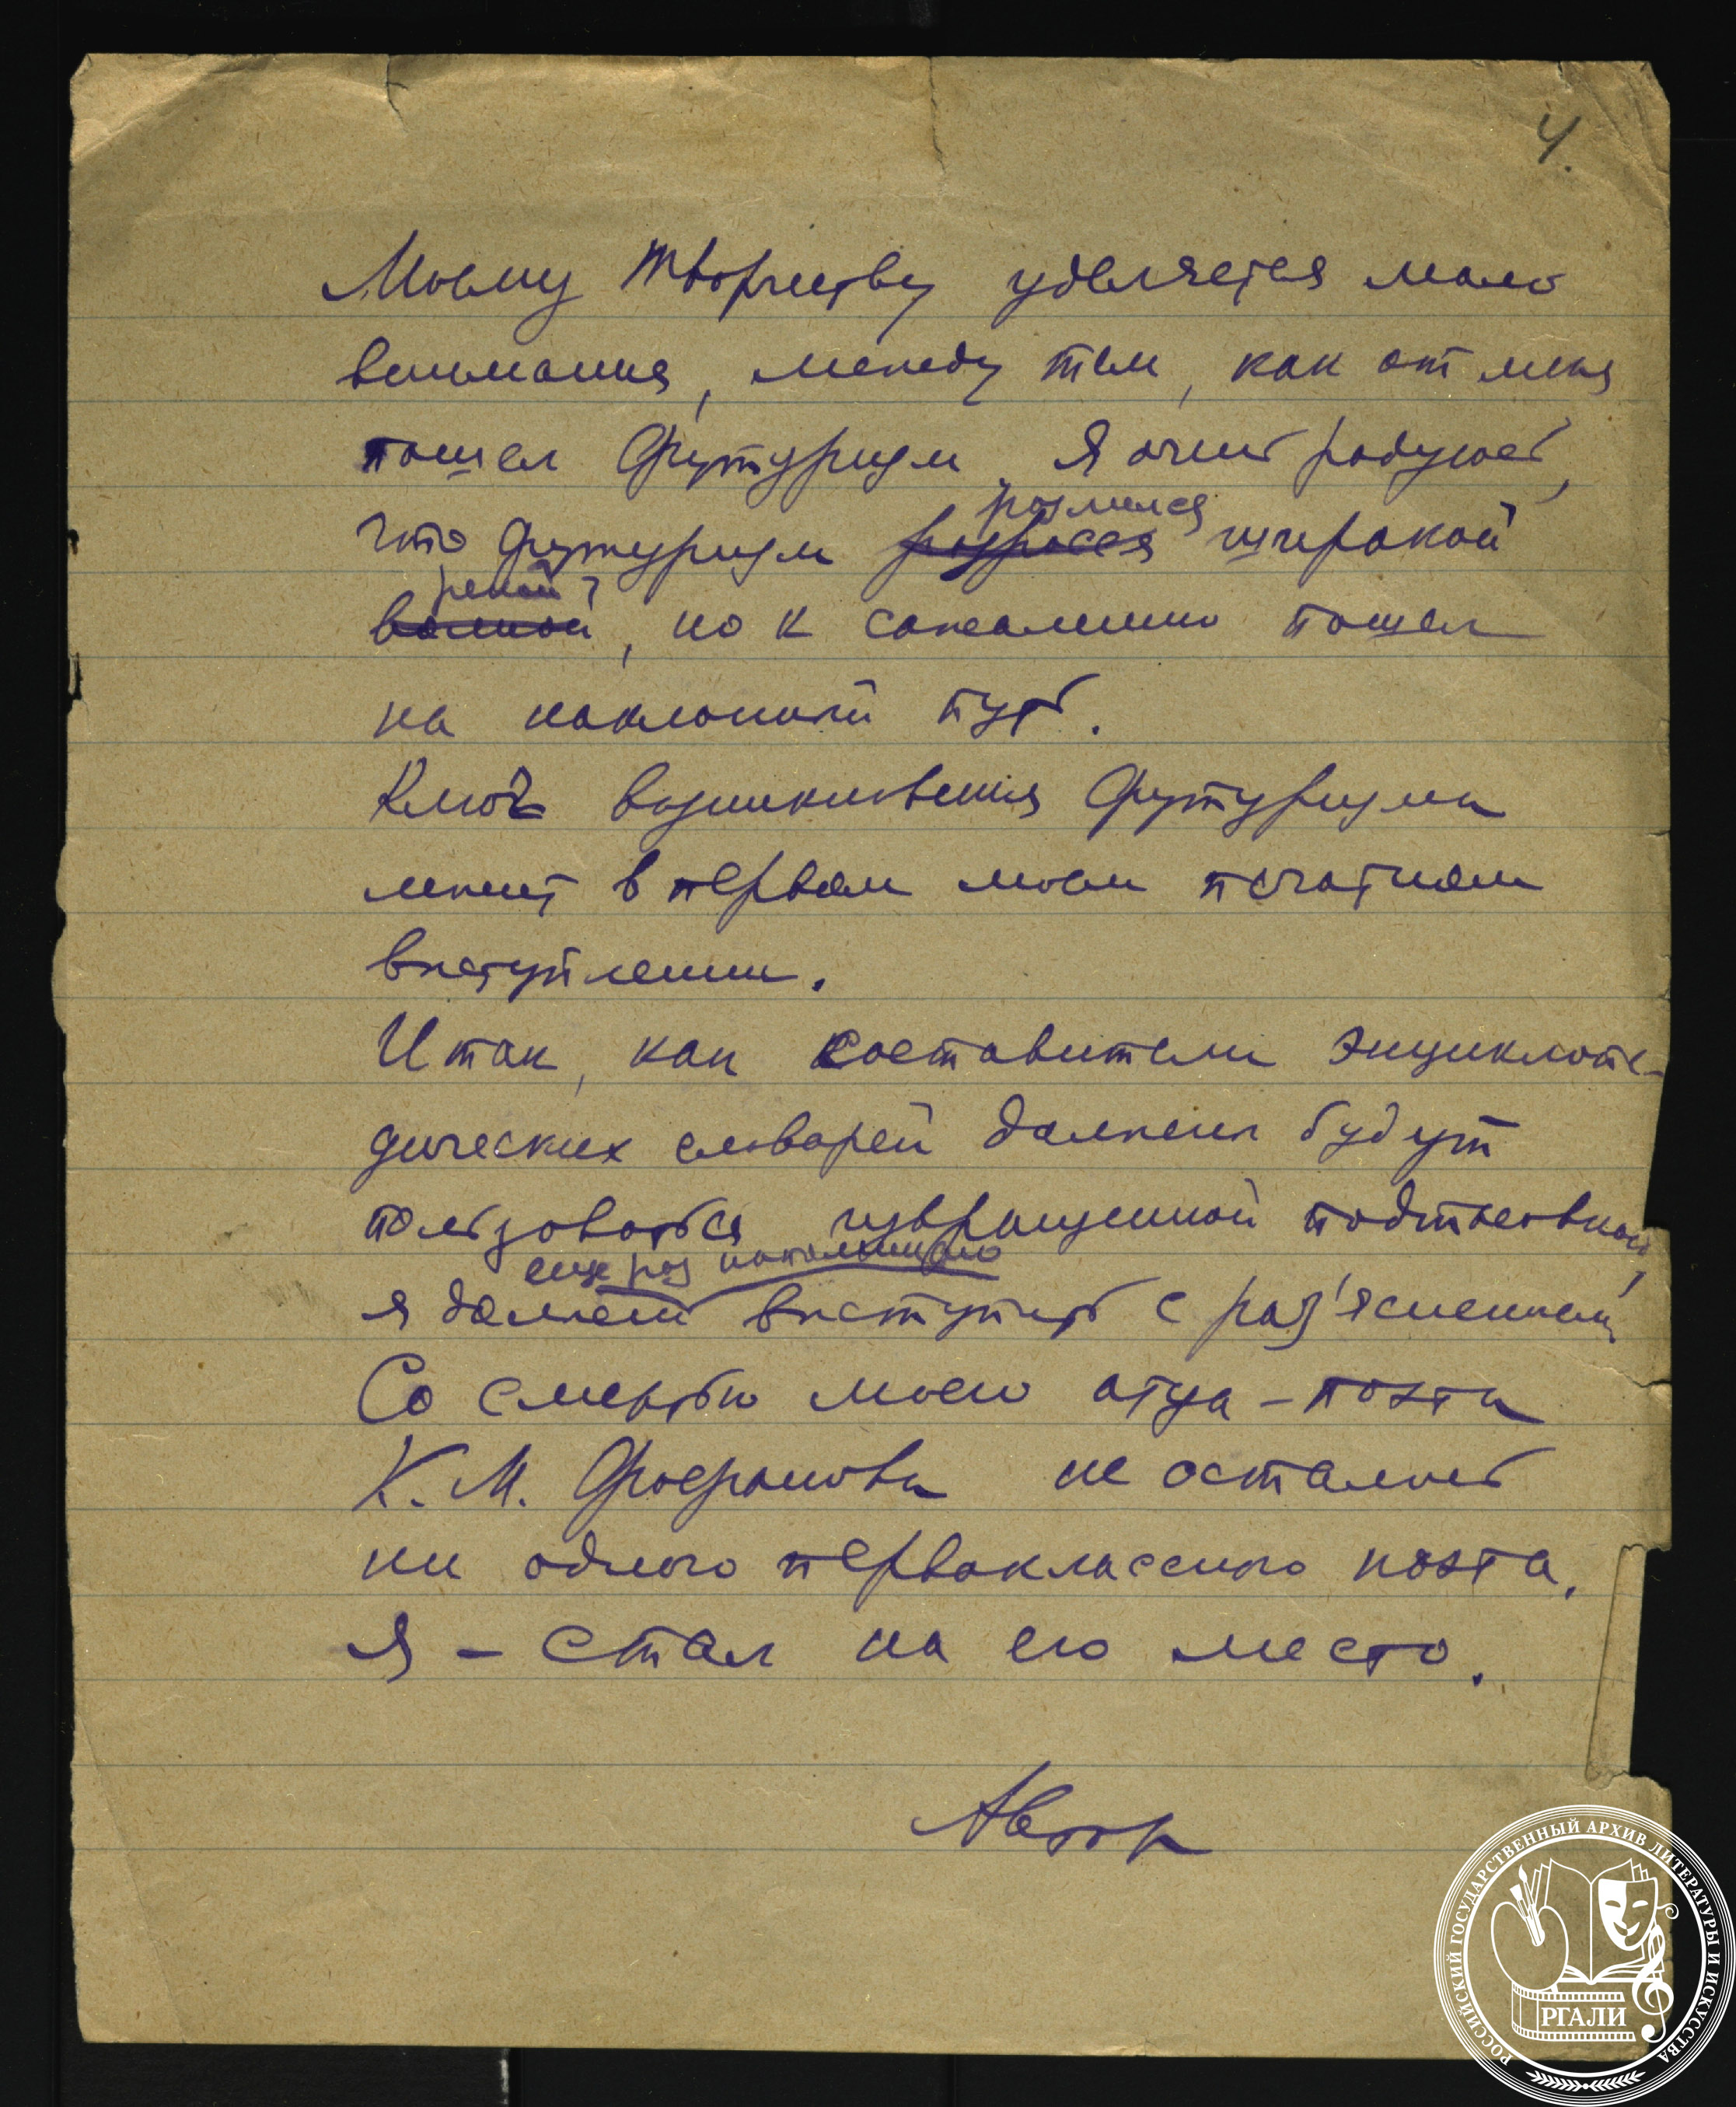 4.
Моему творчеству уделяется мало
внимания, между тем, как от меня
пошел Футуризм. Я очень радуюсь,
разлился
что футуризм разросся широкой
рекой
волной, но к сожалению пошел
на наклонный путь.
Ключ возникновения Футуризма
лежит в первом моем печатном
выступлении.
И так, как составители энциклопе-
дических словарей должны будут
пользоваться извращенной подтасовкой,
еще раз напоминаю
я должен выступить с раз'яснением
Со смертью моего отца – поэта
К. М. Фофанова не осталось
ни одного первоклассного поэта.
Я – стал на его место.
Автор
РОССИЙСКИЙ ГОСУДАРСТВЕННЫЙ АРХИВ ЛИТЕРАТУРЫ И ИСКУССТВА
РГАЛИ